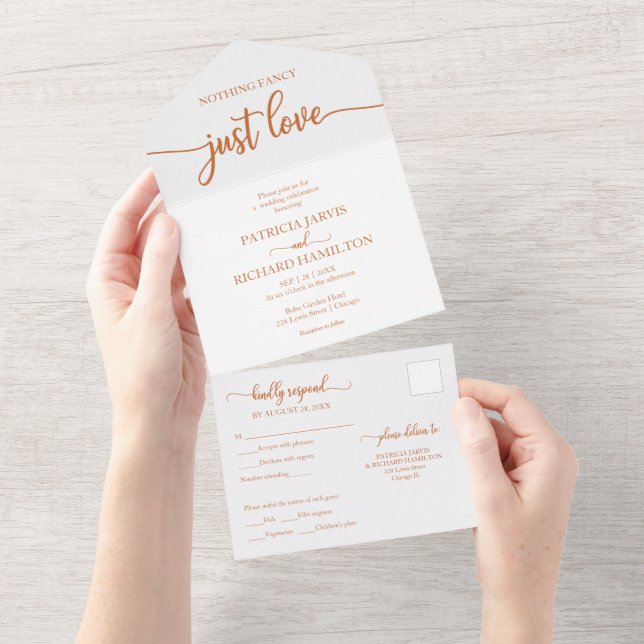 NOTHING FANCY
just love
Please join us for
a wedding celebration
honoring
PATRICIA JARVIS
and
RICHARD HAMILTON
SEP | 28 | 20XX
At six o'clock in the afternoon
Boho Garden Hotel
228 Lewis Street | Chicago
Reception to follow
kindly respond
BY AUGUST 28, 20XX
M
Accepts with pleasure
Declines with regrets
Number attending
Please initial the entree of each guest
Fish Filet mignon
Vegetarian Children's plate
please deliver to:
PATRICIA JARVIS
& RICHARD HAMILTON
228 Lewis Street
Chicago IL